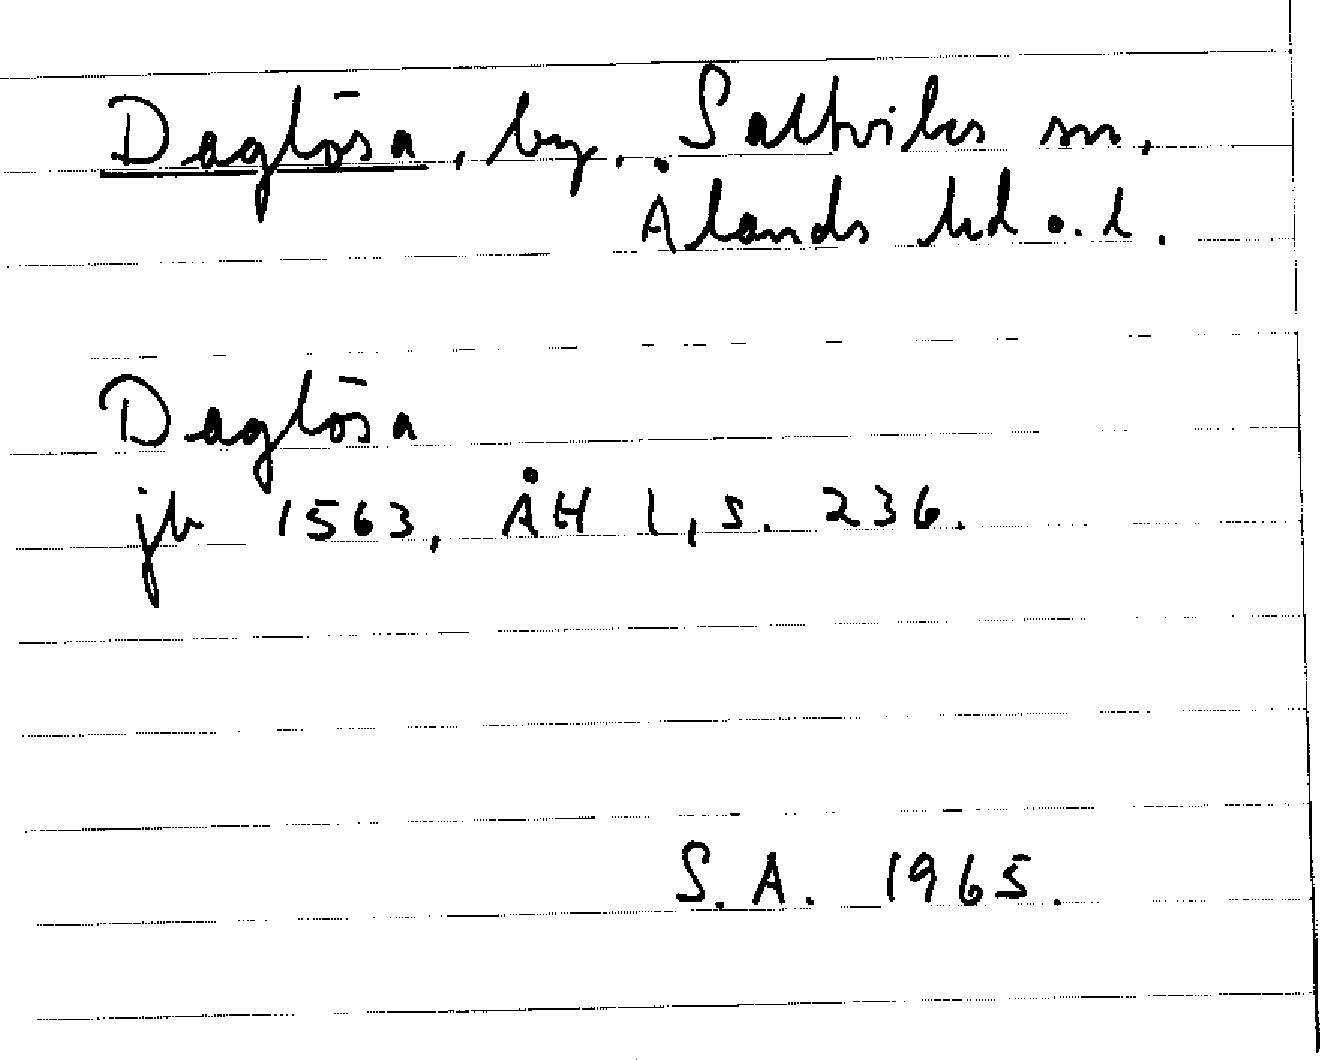 Daglösa, by, Saltviks sn,
Ålands hd o. l.
Daglösa
jb 1563, ÅH I, s. 236.
S. A. 1965.